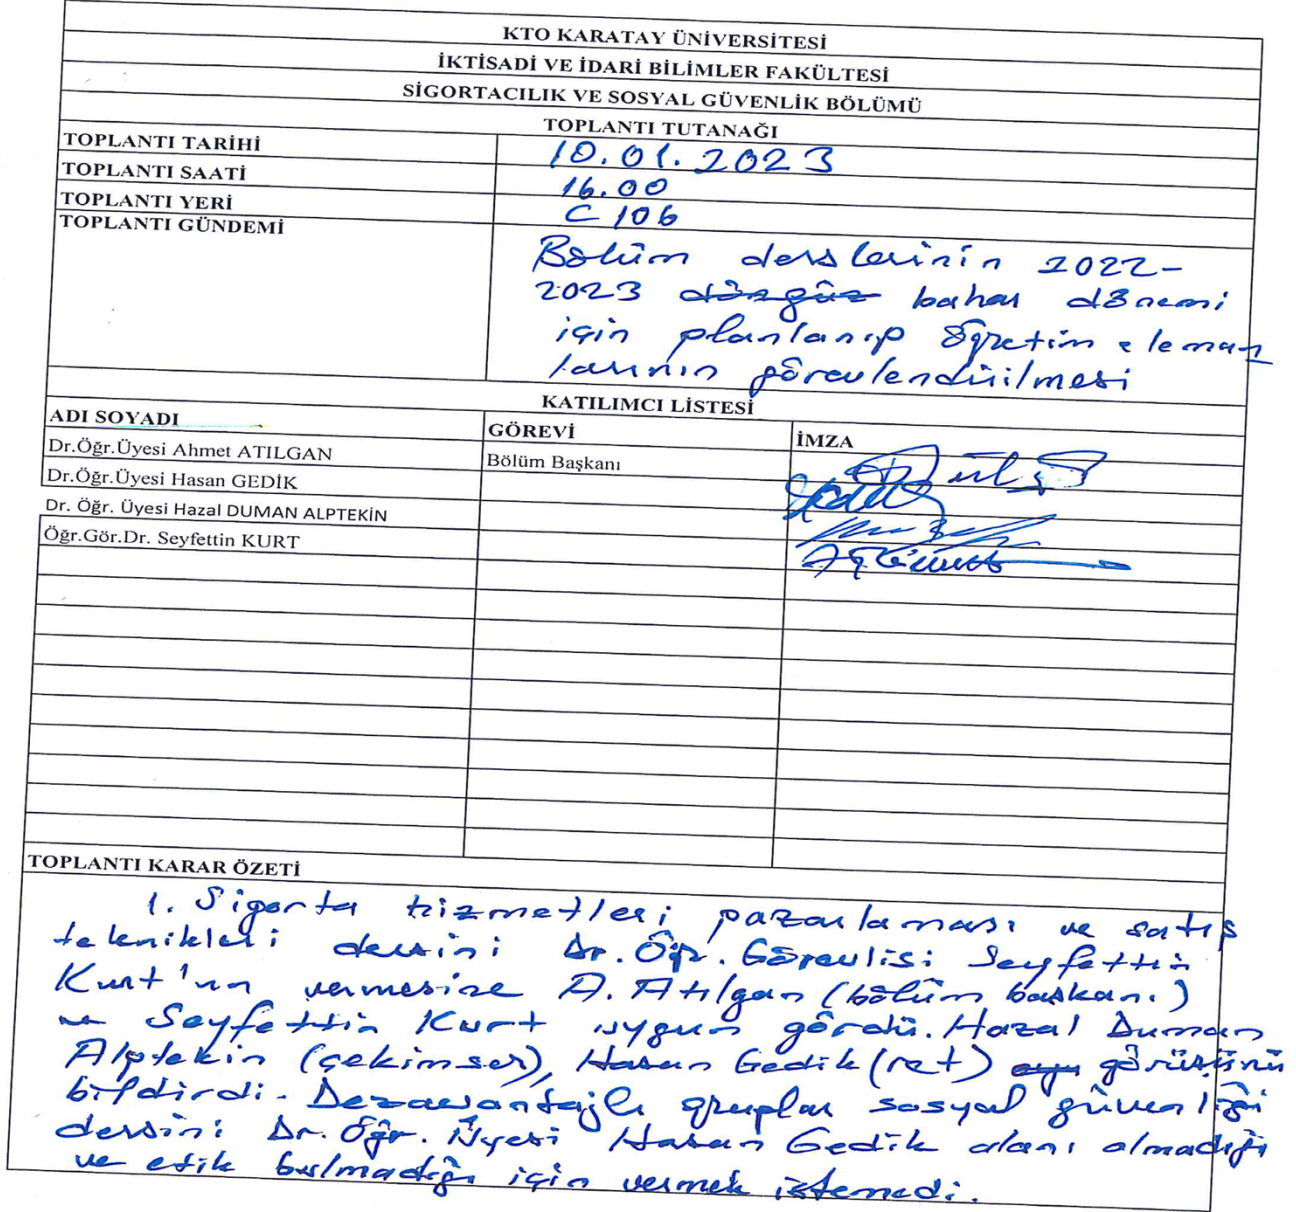 KTO KARATAY ÜNİVERSİTESİ
İKTİSADİ VE İDARİ BİLİMLER FAKÜLTESİ
SİGORTACILIK VE SOSYAL GÜVENLİK BÖLÜMÜ
TOPLANTI TUTANAĞI
TOPLANTI TARİHİ 10.01.2023
TOPLANTI SAATİ 16.00
TOPLANTI YERİ C 106
TOPLANTI GÜNDEMİ
Bölüm derslerinin 2022-
2023 bahar dönemi
için planlanıp öğretim eleman
larının görevlendirilmesi
KATILIMCI LİSTESİ
ADI SOYADI GÖREVİ İMZA
Dr.Öğr.Üyesi Ahmet ATILGAN Bölüm Başkanı
Dr.Öğr.Üyesi Hasan GEDİK
Dr. Öğr. Üyesi Hazal DUMAN ALPTEKİN
Öğr.Gör.Dr. Seyfettin KURT
TOPLANTI KARAR ÖZETİ
1. Sigorta hizmetleri pazarlaması ve satış
teknikleri dersini Dr. Öğr. Görevlisi Seyfettin
Kurt'un vermesine A. Atılgan (bölüm başkanı)
ve Seyfettin Kurt uygun gördü. Hazal Duman
Alptekin (çekimser), Hasan Gedik (ret) görüşünü
bildirdi. Dezavantajlı gruplar sosyal güvenliği
dersini Dr. Öğr. Üyesi Hasan Gedik alanı olmadığı
ve etik bulmadığı için vermek istemedi.